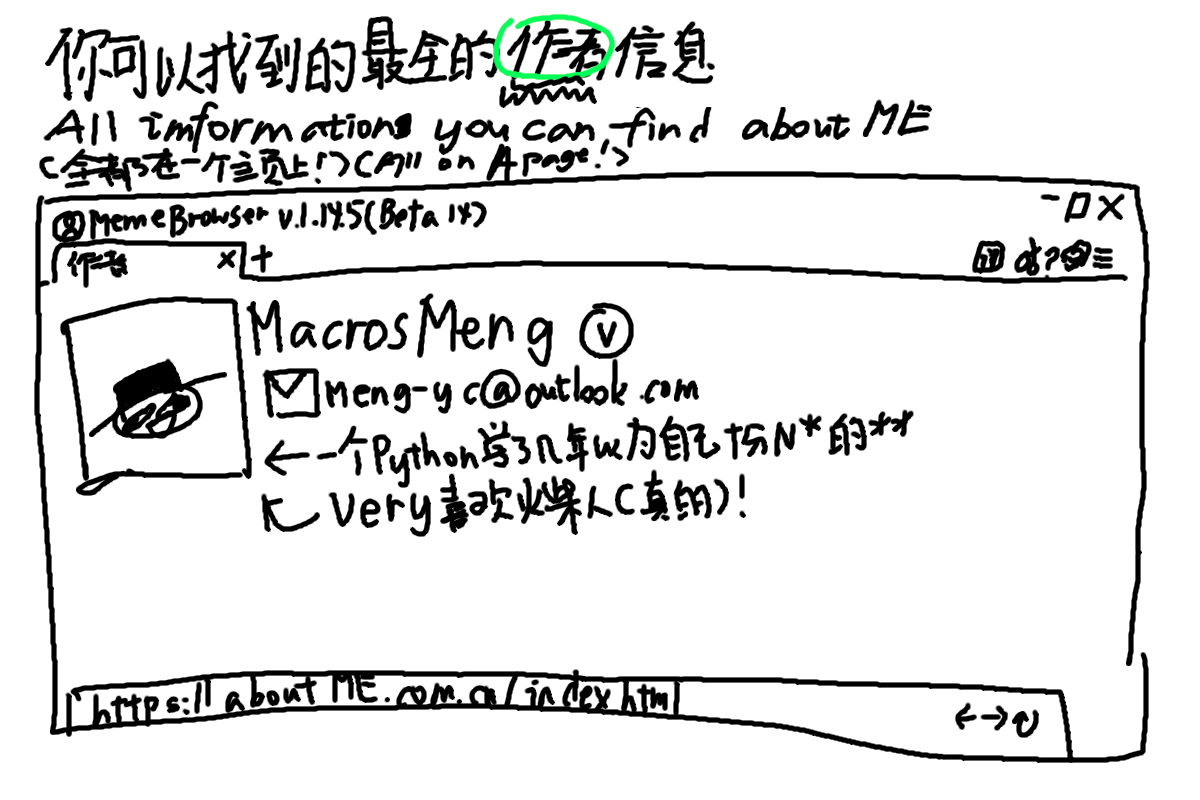 你可以找到的最全的作者信息
All imformations you can find about ME
(全都在一个主页上!)(All on A page!)
MemeBrowser v.1.14.5(Beta 14)
作者 × +
MacrosMeng V
meng-yc@outlook.com
←一个Python学了几年以为自己十分N*的**
Very喜欢火柴人(真的)!
https://aboutME.com.cn/index.html